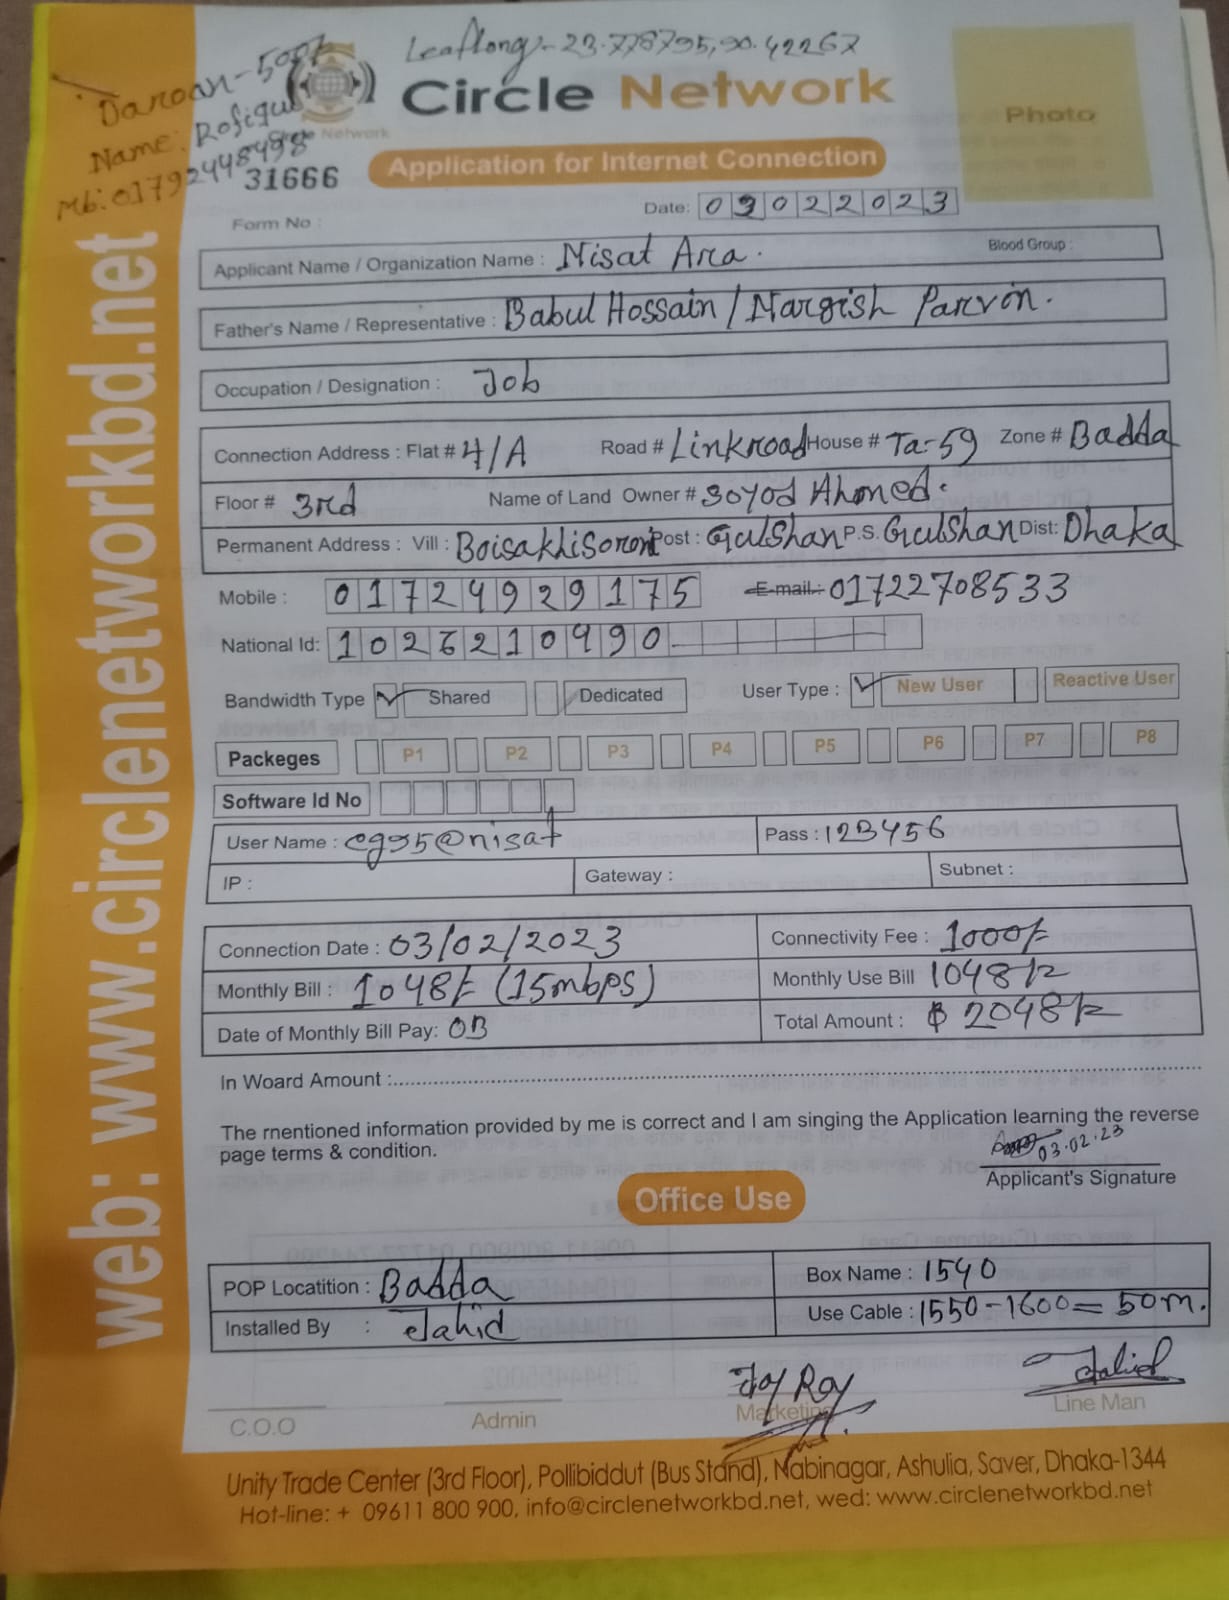 Leaflong:- 23.778795,90.42267
Daroan-500/-
Name: Rofiqul
Mb: 01792448498
Circle Network
Application for Internet Connection
Photo
31666
Form No :
Date: 03022023
Applicant Name / Organization Name : Nisat Ara.
Blood Group :
Father's Name / Representative : Babul Hossain / Nargish Parvin.
Occupation / Designation : Job
Connection Address : Flat # 4/A Road # Linkroad House # Ta-59 Zone # Badda
Floor # 3rd Name of Land Owner # Soyod Ahmed.
Permanent Address : Vill : Boisakhi Soroni Post : Gulshan P.S. Gulshan Dist: Dhaka
Mobile : 01724929175 E-mail : 01722708533
National Id: 1026210990
Bandwidth Type Shared Dedicated User Type : New User Reactive User
Packeges P1 P2 P3 P4 P5 P6 P7 P8
Software Id No
User Name : eg95@nisat Pass : 123456
IP : Gateway : Subnet :
Connection Date : 03/02/2023 Connectivity Fee : 1000/-
Monthly Bill : 1048/- (15mbps) Monthly Use Bill 1048/-
Date of Monthly Bill Pay: 03 Total Amount : 2048/-
In Woard Amount :
The rnentioned information provided by me is correct and I am singing the Application learning the reverse
page terms & condition.
03.02.23
Applicant's Signature
Office Use
POP Locatition : Badda Box Name : 1540
Installed By : Jahid Use Cable : 1550-1600= 50m.
Joy Roy Jahid
C.O.O Admin Marketing Line Man
Unity Trade Center (3rd Floor), Pollibiddut (Bus Stand), Nabinagar, Ashulia, Saver, Dhaka-1344
Hot-line: + 09611 800 900, info@circlenetworkbd.net, wed: www.circlenetworkbd.net
web: www.circlenetworkbd.net